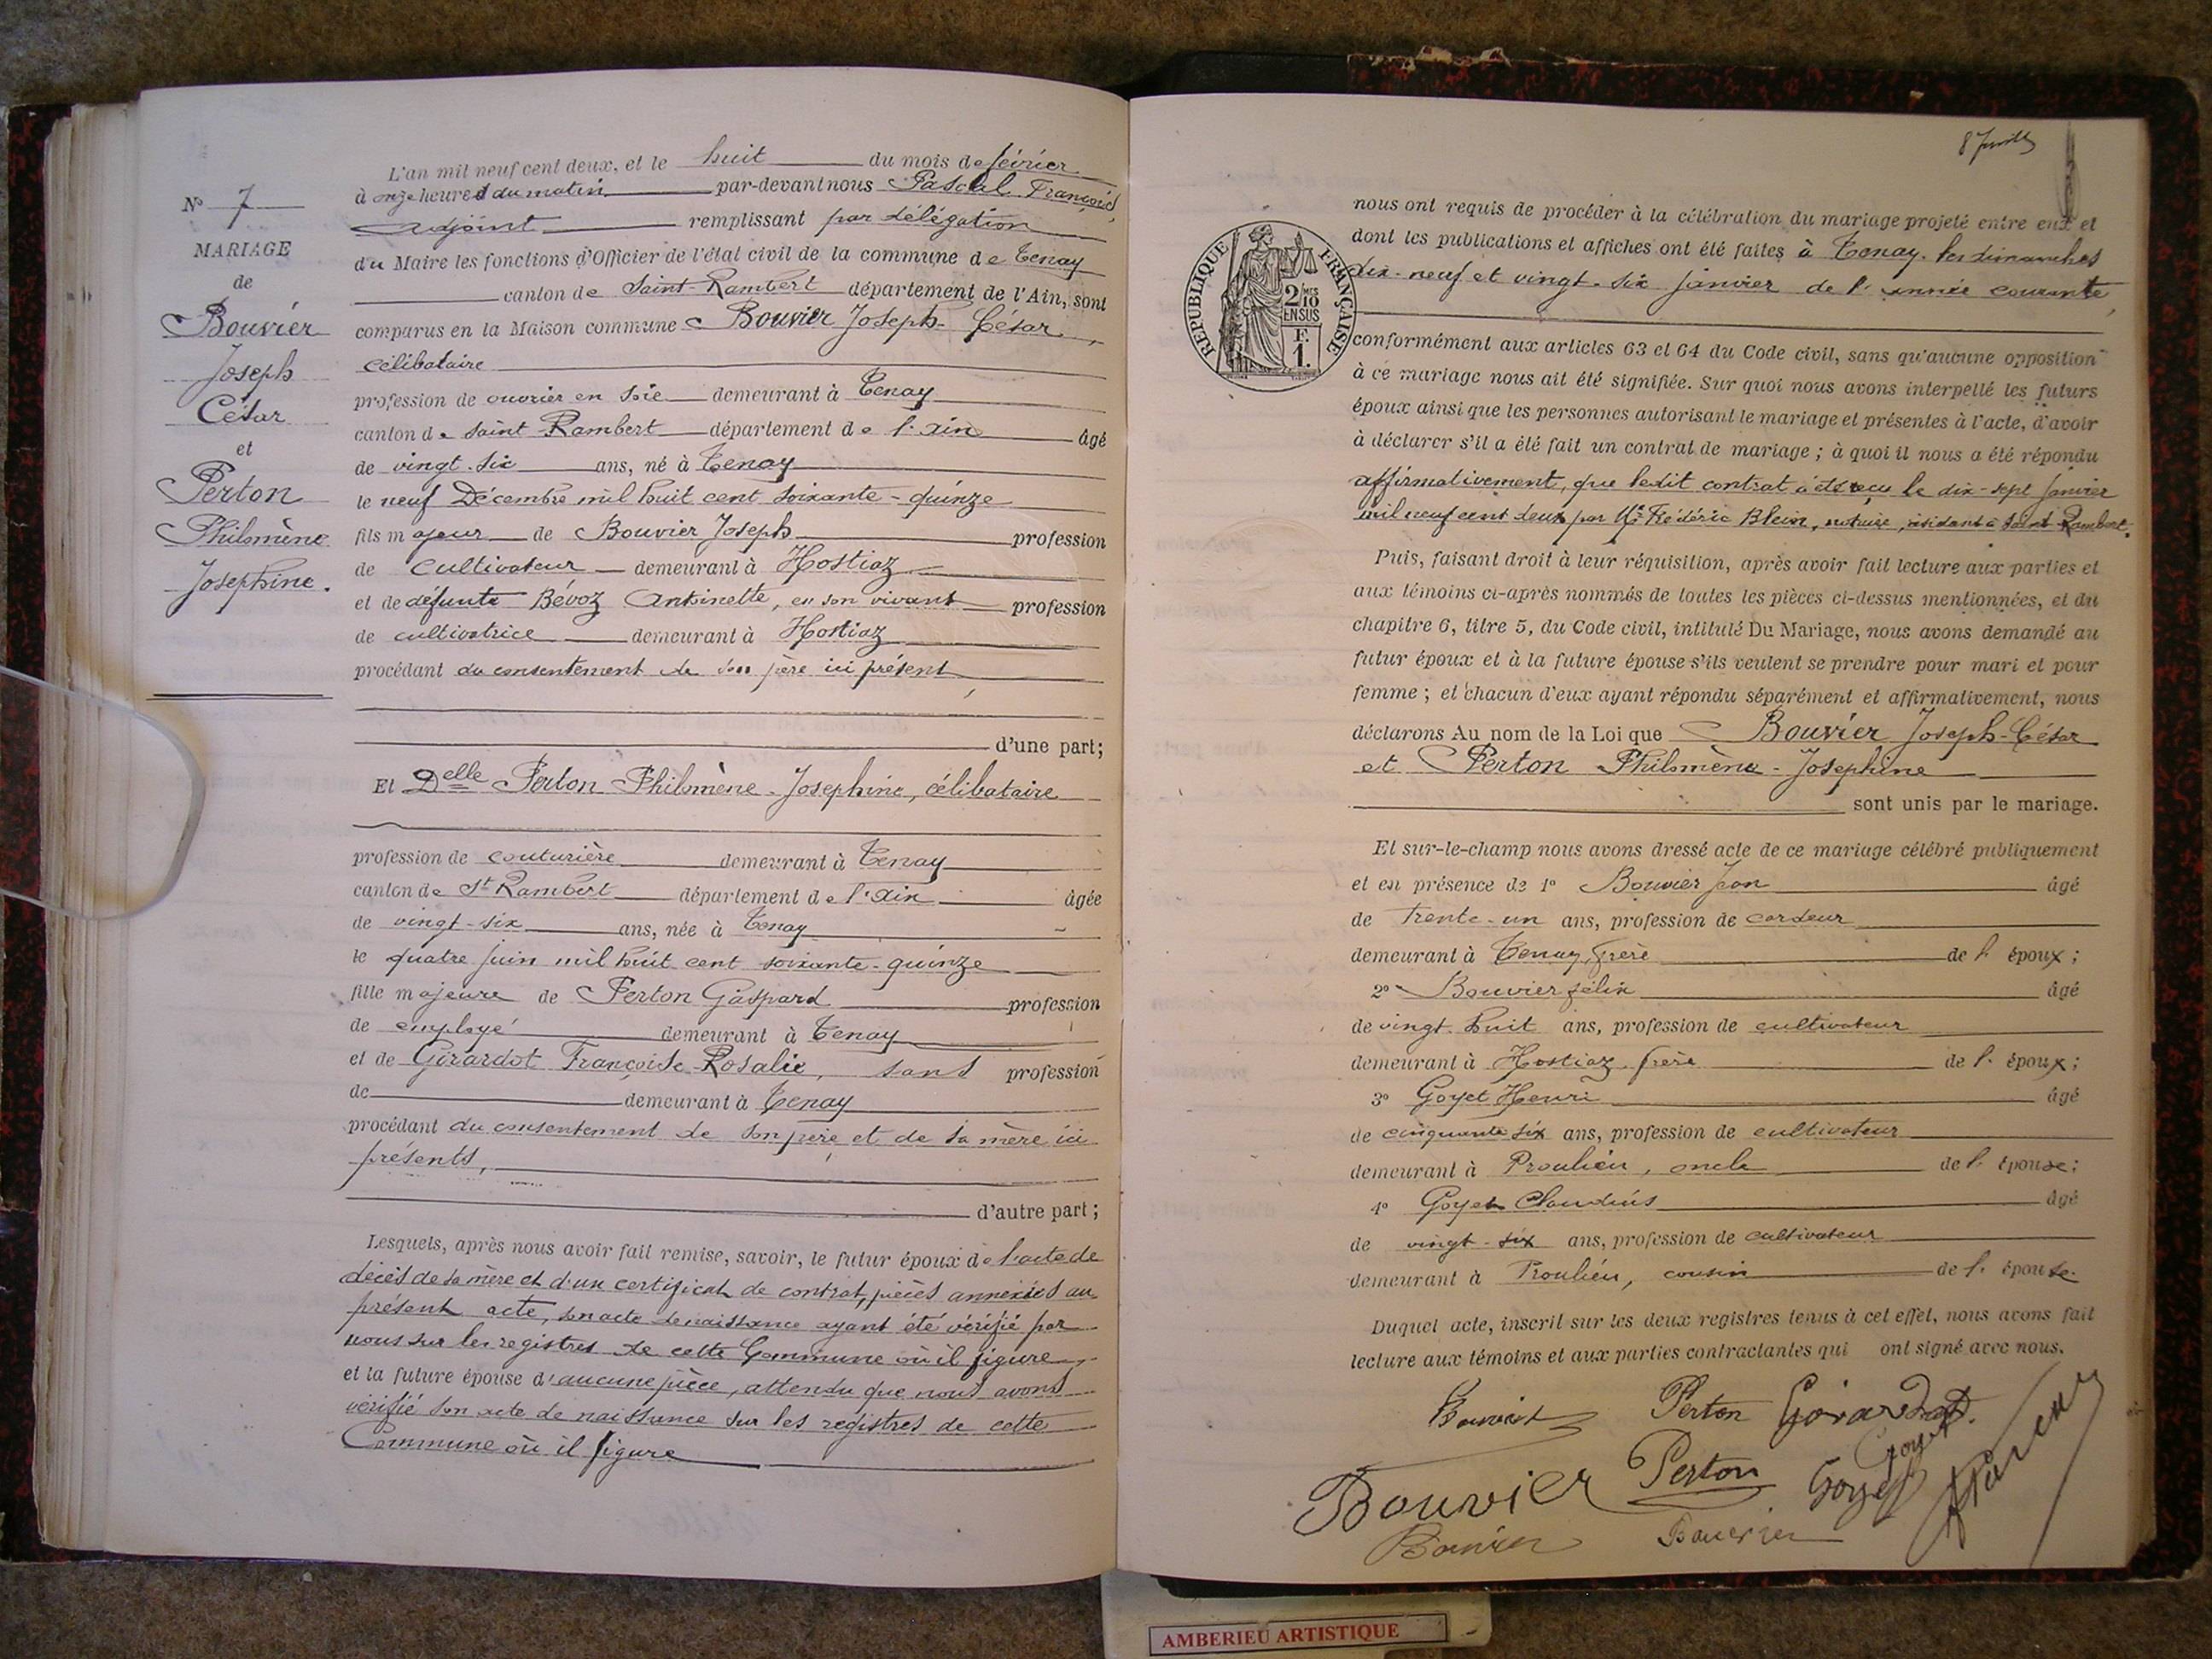 N° 7
MARIAGE
de
Bouvier
Joseph
César
et
Perton
Philomène
Josephine.
L'an mil neuf cent deux, et le huit du mois de février
à onze heures du matin par-devant nous Pascal François,
adjoint remplissant par délégation
du Maire les fonctions d'Officier de l'état civil de la commune de Tenay
canton de Saint-Rambert département de l'Ain, sont
comparus en la Maison commune Bouvier Joseph-César,
célibataire
profession de ouvrier en soie demeurant à Tenay
canton de Saint-Rambert département de l'Ain âgé
de vingt-six ans, né à Tenay
le neuf Décembre mil huit cent soixante-quinze
fils majeur de Bouvier Joseph profession
de cultivateur demeurant à Hostiaz
et de défunte Bévoz Antoinette, en son vivant profession
de cultivatrice demeurant à Hostiaz
procédant du consentement de son père ici présent,
d'une part;
Et Delle Perton Philomène-Josephine, célibataire
profession de couturière demeurant à Tenay
canton de St Rambert département de l'Ain âgée
de vingt-six ans, née à Tenay
le quatre juin mil huit cent soixante-quinze
fille majeure de Perton Gaspard profession
de employé demeurant à Tenay
et de Girardot Françoise-Rosalie, sans profession
de demeurant à Tenay
procédant du consentement de son père et de sa mère ici
présents,
d'autre part;
Lesquels, après nous avoir fait remise, savoir, le futur époux de l'acte de
décès de sa mère et d'un certificat de contrat, pièces annexées au
présent acte, son acte de naissance ayant été vérifié par
nous sur les registres de cette Commune où il figure,
et la future épouse d'aucune pièce, attendu que nous avons
vérifié son acte de naissance sur les registres de cette
Commune où il figure
8
RÉPUBLIQUE FRANÇAISE
2/10
MES
EN SUS
F.
1.
nous ont requis de procéder à la célébration du mariage projeté entre eux et
dont les publications et affiches ont été faites à Tenay les dimanches
dix-neuf et vingt-six janvier de l'année courante,
conformément aux articles 63 et 64 du Code civil, sans qu'aucune opposition
à ce mariage nous ait été signifiée. Sur quoi nous avons interpellé les futurs
époux ainsi que les personnes autorisant le mariage et présentes à l'acte, d'avoir
à déclarer s'il a été fait un contrat de mariage; à quoi il nous a été répondu
affirmativement, que ledit contrat a été reçu le dix-sept janvier
mil neuf cent deux par Me Frédéric Blein, notaire, résidant à Saint-Rambert.
Puis, faisant droit à leur réquisition, après avoir fait lecture aux parties et
aux témoins ci-après nommés de toutes les pièces ci-dessus mentionnées, et du
chapitre 6, titre 5, du Code civil, intitulé Du Mariage, nous avons demandé au
futur époux et à la future épouse s'ils veulent se prendre pour mari et pour
femme; et chacun d'eux ayant répondu séparément et affirmativement, nous
déclarons Au nom de la Loi que Bouvier Joseph-César
et Perton Philomène-Josephine
sont unis par le mariage.
Et sur-le-champ nous avons dressé acte de ce mariage célébré publiquement
et en présence de 1° Bouvier Jean âgé
de trente-un ans, profession de cardeur
demeurant à Tenay, frère de l' époux;
2° Bouvier Félix âgé
de vingt-huit ans, profession de cultivateur
demeurant à Hostiaz frère de l' époux;
3° Goyet Henri âgé
de cinquante six ans, profession de cultivateur
demeurant à Proulieu, oncle de l' épouse;
4° Goyet Claudius âgé
de vingt-six ans, profession de cultivateur
demeurant à Proulieu, cousin de l' épouse.
Duquel acte, inscrit sur les deux registres tenus à cet effet, nous avons fait
lecture aux témoins et aux parties contractantes qui ont signé avec nous.
Bouvier Perton Girardot.
Goyet
Bouvier Perton Goyet
Bouvier Bouvier
AMBERIEU ARTISTIQUE